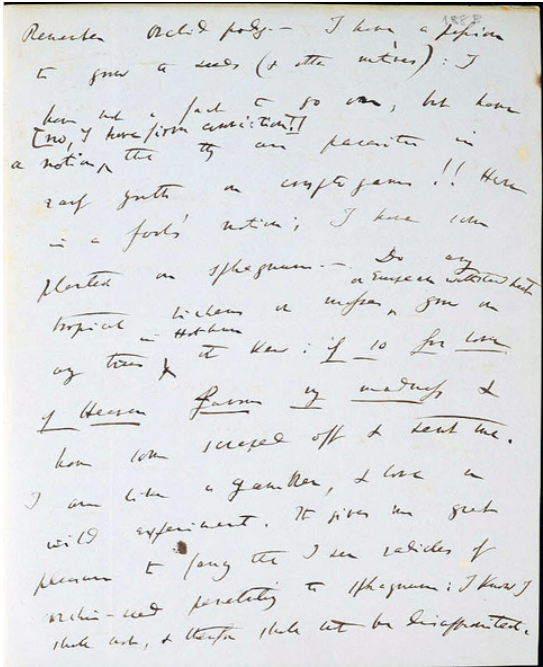 Remember Orchid pods.— I have a passion
to grow the seeds (& other motives): I
have not a fact to go on, but have
[no, I have firm conviction!]
a notion that they are parasites in
early youth on cryptogams!! Here
is a fool's notion; I have some
planted on sphagnum.— Do any
tropical lichens or mosses, or European withstand heat grow on
any trees in Hothouse at Kew: if so for love
of Heaven favour my madness &
have some scraped off & sent me.
I am like a gambler, & love a
wild experiment. It gives me great
pleasure to fancy that I see radicles of
orchis-seed penetrating the sphagnum: I know I
shall not, & therefore shall not be disappointed.